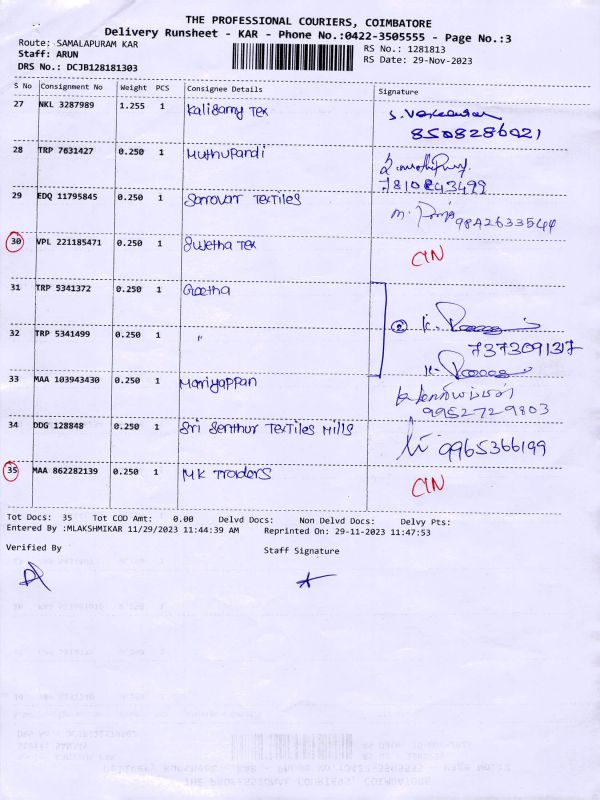 THE PROFESSIONAL COURIERS, COIMBATORE
Delivery Runsheet - KAR - Phone No.:0422-3505555 - Page No.:3
Route: SAMALAPURAM KAR RS No.: 1281813
Staff: ARUN RS Date: 29-Nov-2023
DRS No.: DCJB128181303
S No Consignment No Weight PCS Consignee Details Signature
27 NKL 3287989 1.255 1 Kaligamy Tex
8508286021
28 TRP 7631427 0.250 1 Muthupandi
7810843499
29 EDQ 11795845 0.250 1 Sarovar Textiles
9842633544
30 VPL 221185471 0.250 1 Swetha Tex C/N
31 TRP 5341372 0.250 1 Geetha
② K.
32 TRP 5341499 0.250 1 "
737309137
K.
33 MAA 103943430 0.250 1 Mariyappan
9952729803
34 DDG 128848 0.250 1 Sri Senthur Textiles Mills
9965366199
35 MAA 862282139 0.250 1 MK Traders C/N
Tot Docs: 35 Tot COD Amt: 0.00 Delvd Docs: Non Delvd Docs: Delvy Pts:
Entered By :MLAKSHMIKAR 11/29/2023 11:44:39 AM Reprinted On: 29-11-2023 11:47:53
Verified By Staff Signature